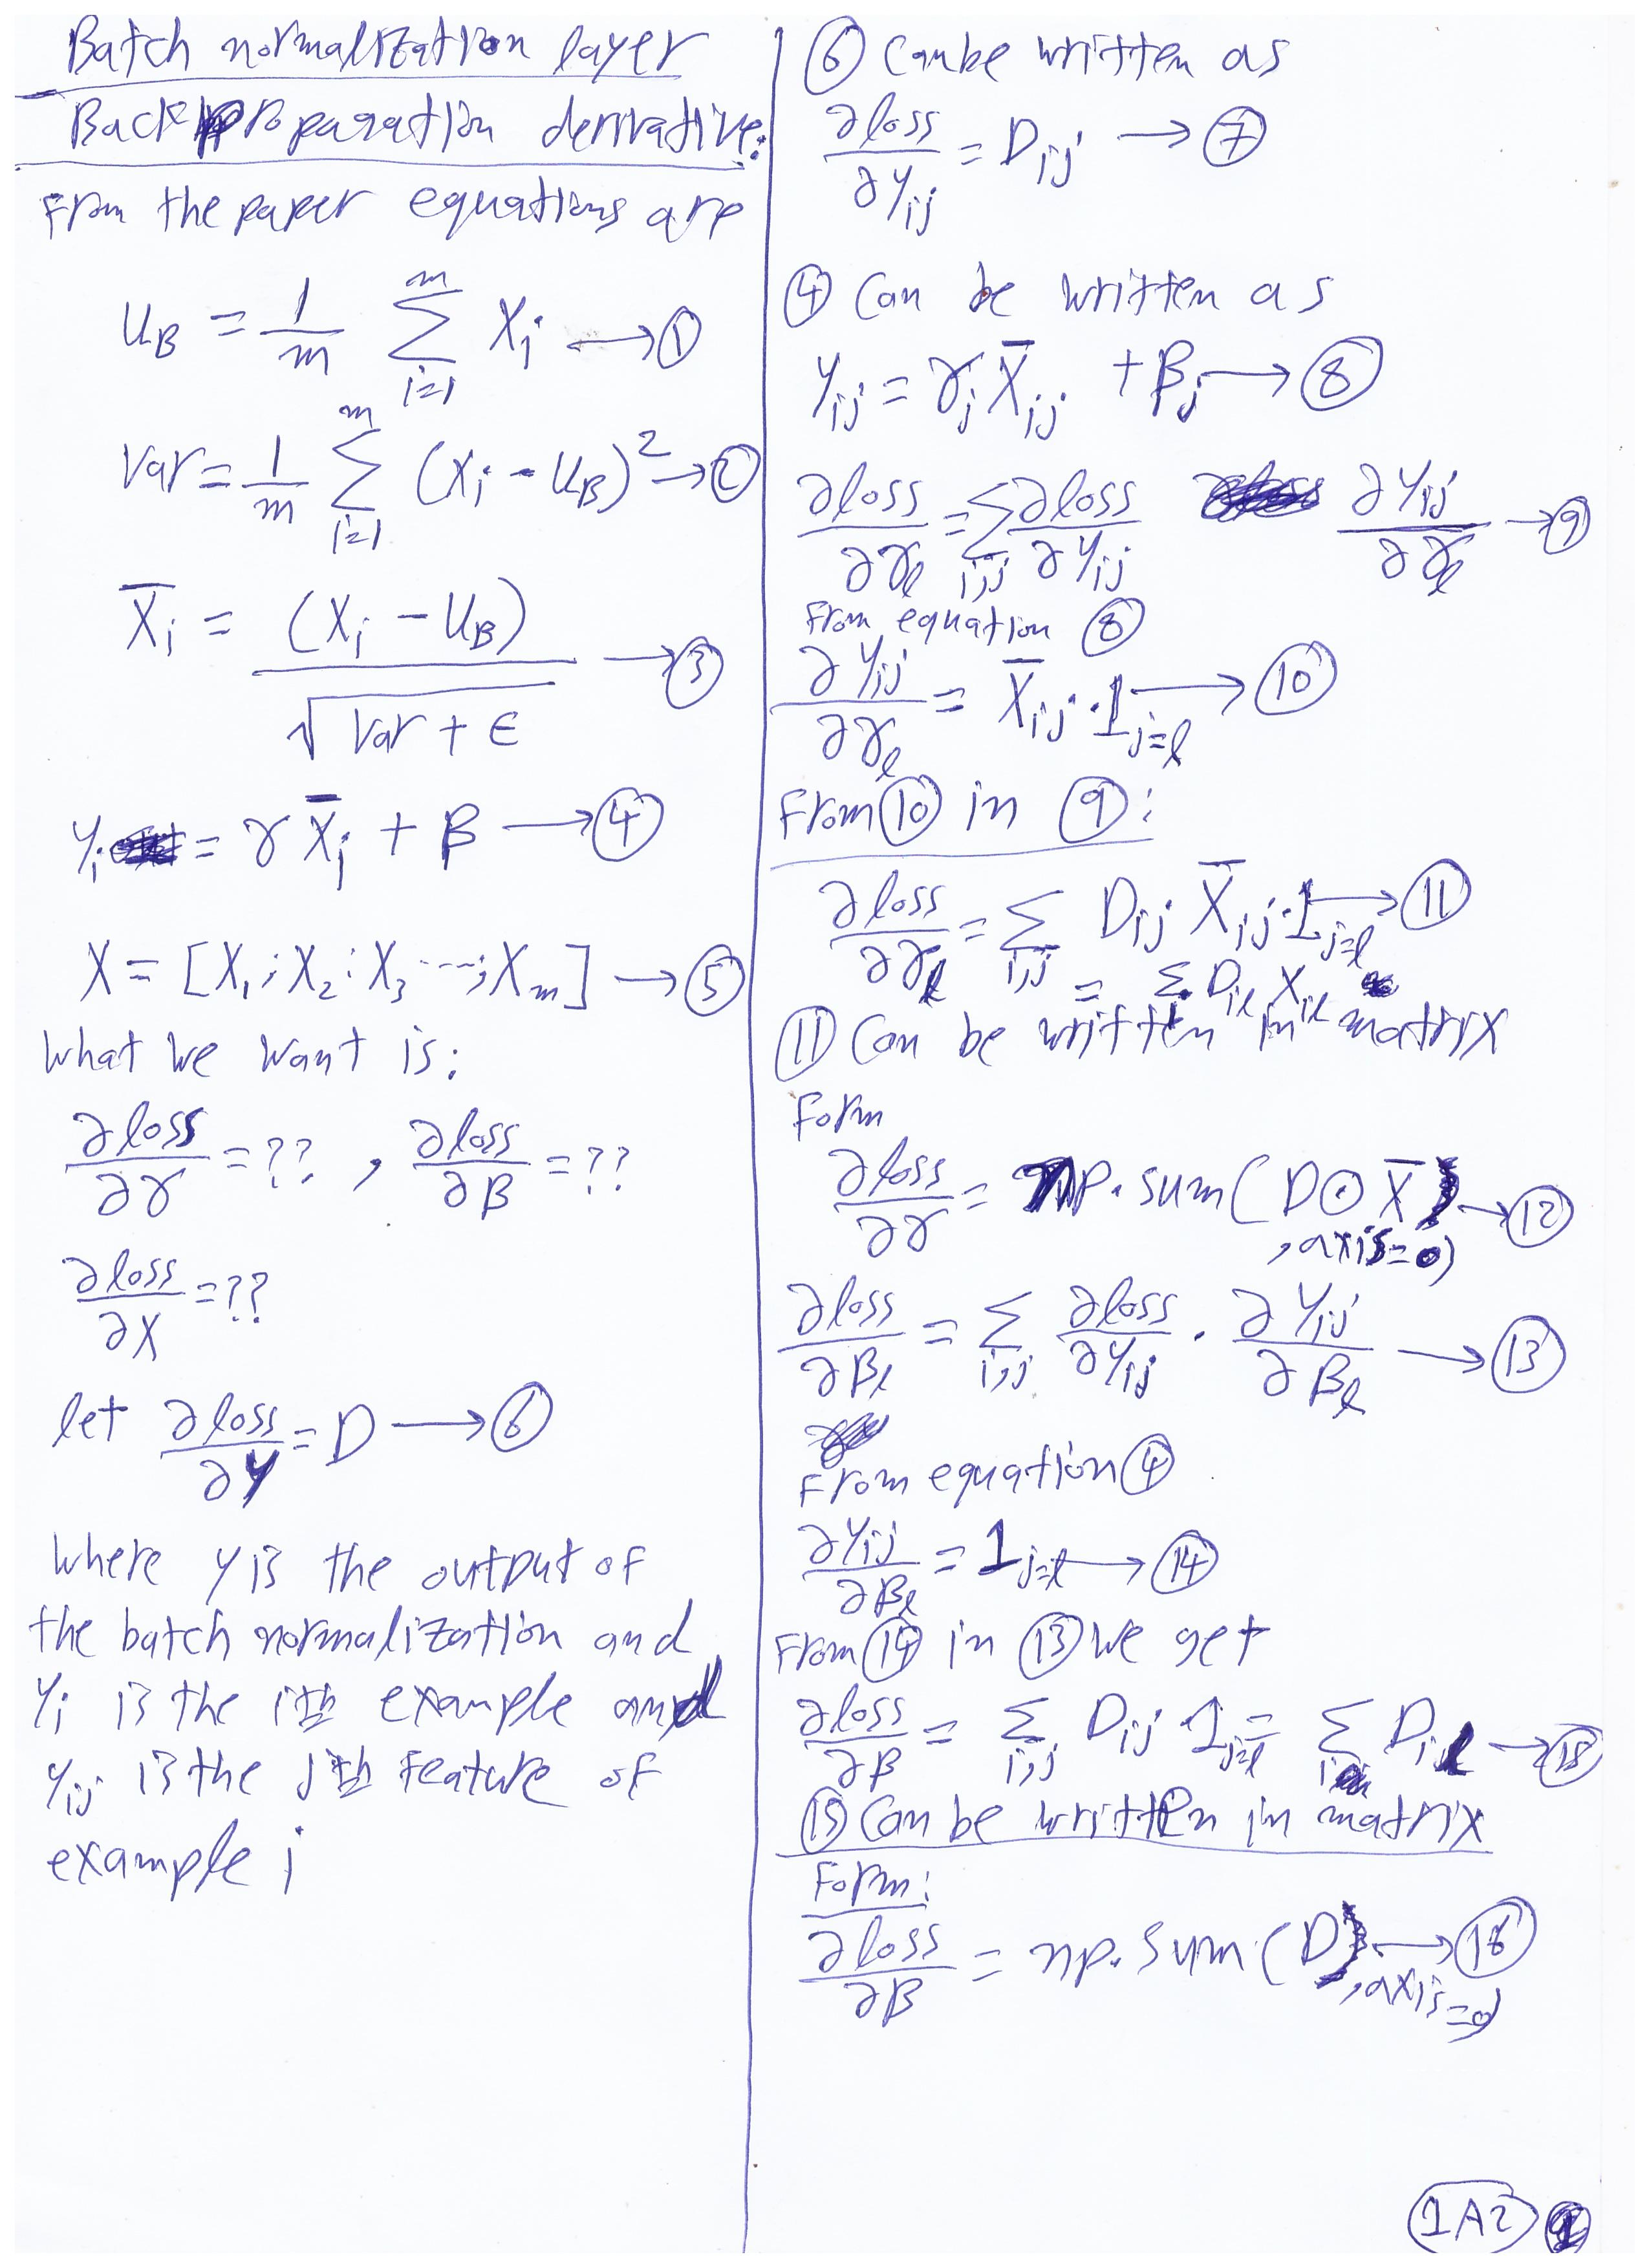 Batch normalization layer
Backpropagation derivative:
From the paper equations are
U_B = 1/m Σ_{i=1}^{m} X_i → ①
Var = 1/m Σ_{i=1}^{m} (X_i - U_B)² → ②
X̄_i = (X_i - U_B) / √(Var + ε) → ③
y_i = γ X̄_i + β → ④
X = [X_1; X_2; X_3 ...; X_m] → ⑤
What we want is:
∂loss/∂γ = ?? , ∂loss/∂β = ??
∂loss/∂X = ??
let ∂loss/∂Y = D → ⑥
Where y is the output of
the batch normalization and
y_i is the ith example and
y_ij is the jth feature of
example i
⑥ Can be written as
∂loss/∂y_ij = D_ij → ⑦
④ Can be written as
y_ij = γ_j X̄_ij + β_j → ⑧
∂loss/∂γ_l = Σ_{i,j} ∂loss/∂y_ij ∂y_ij/∂γ_l → ⑨
From equation ⑧
∂y_ij/∂γ_l = X̄_ij · 1_{j=l} → ⑩
From ⑩ in ⑨:
∂loss/∂γ_l = Σ_{i,j} D_ij X̄_ij · 1_{j=l} → ⑪
= Σ_i D_il X_il
⑪ Can be written in matrix
Form
∂loss/∂γ = np.sum(D⊙X̄ → ⑫
,axis=0)
∂loss/∂β_l = Σ_{i,j} ∂loss/∂y_ij · ∂y_ij/∂β_l → ⑬
From equation ④
∂y_ij/∂β_l = 1_{j=l} → ⑭
From ⑭ in ⑬ we get
∂loss/∂β = Σ_{i,j} D_ij 1_{j=l} = Σ_i D_il → ⑮
⑮ Can be written in matrix
Form:
∂loss/∂β = np.sum(D → ⑯
,axis=0)
1A2 1